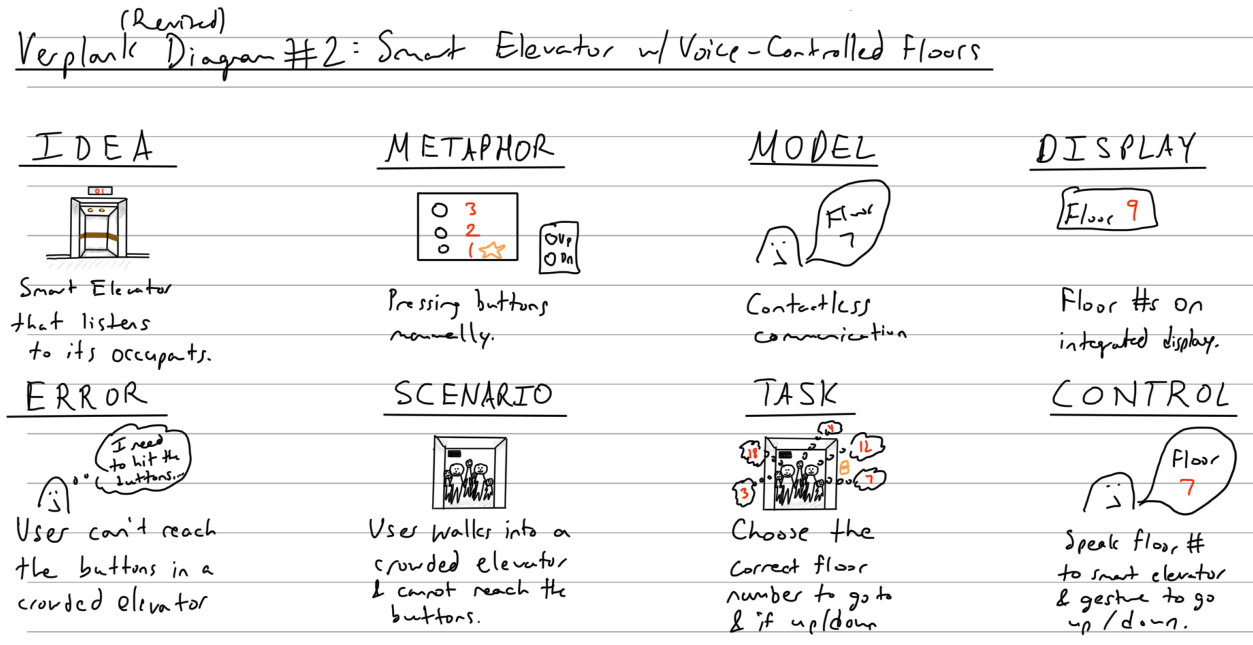 (Revised)
Verplank Diagram #2: Smart Elevator w/ Voice-Controlled Floors
IDEA
01
Smart Elevator
that listens
to its occupants.
METAPHOR
3
2
1
Up
Dn
Pressing buttons
manually.
MODEL
Floor
7
Contactless
communication
DISPLAY
Floor 9
Floor #s on
integrated display.
ERROR
I need
to hit the
buttons...
User can't reach
the buttons in a
crowded elevator
SCENARIO
User walks into a
crowded elevator
& cannot reach the
buttons.
TASK
4
18
12
3
7
Choose the
correct floor
number to go to
& if up/down
CONTROL
Floor
7
Speak floor #
to smart elevator
& gesture to go
up/down.